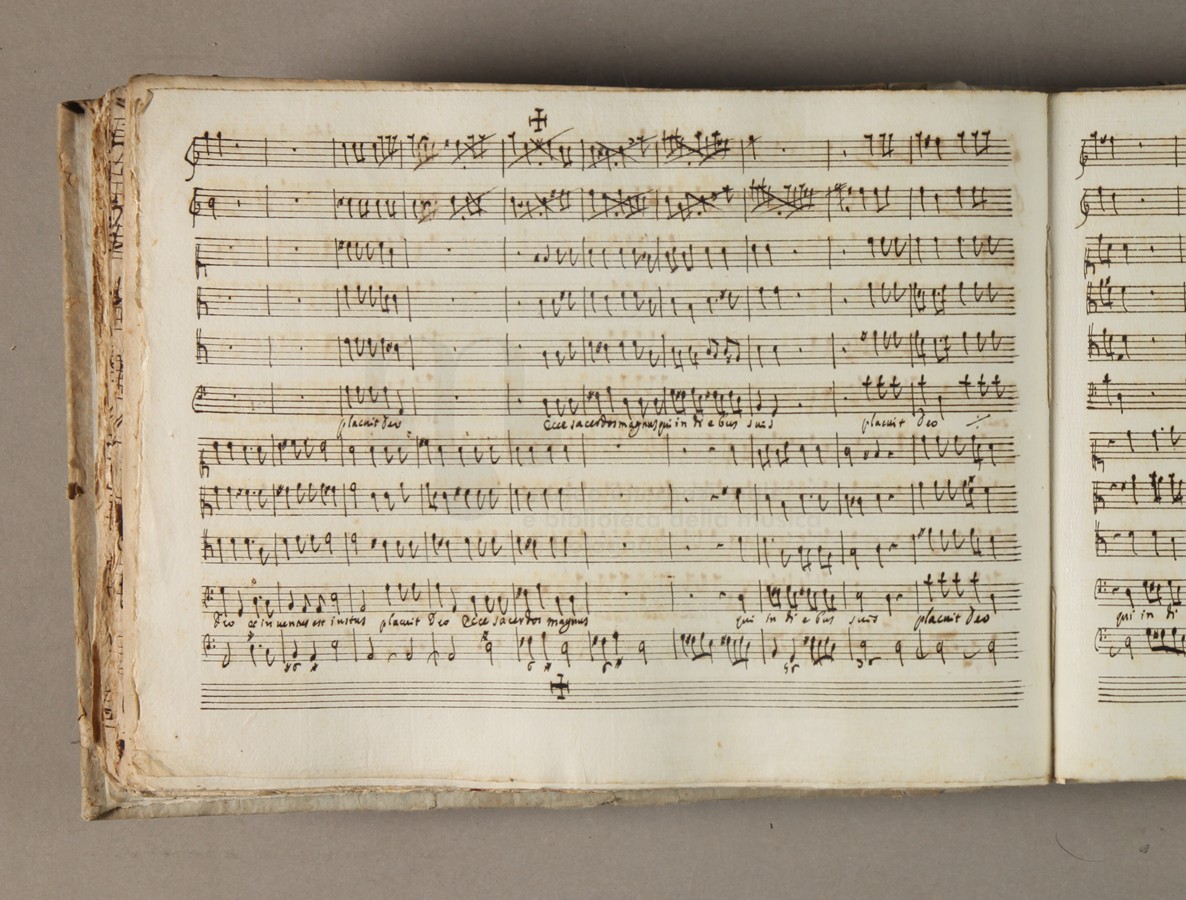 placuit deo Ecce sacerdos magnus qui in di e bus suis placuit deo
deo et inventus est iustus placuit deo Ecce sacerdos magnus qui in di e bus suis placuit deo
qui in di
e biblioteca della musica